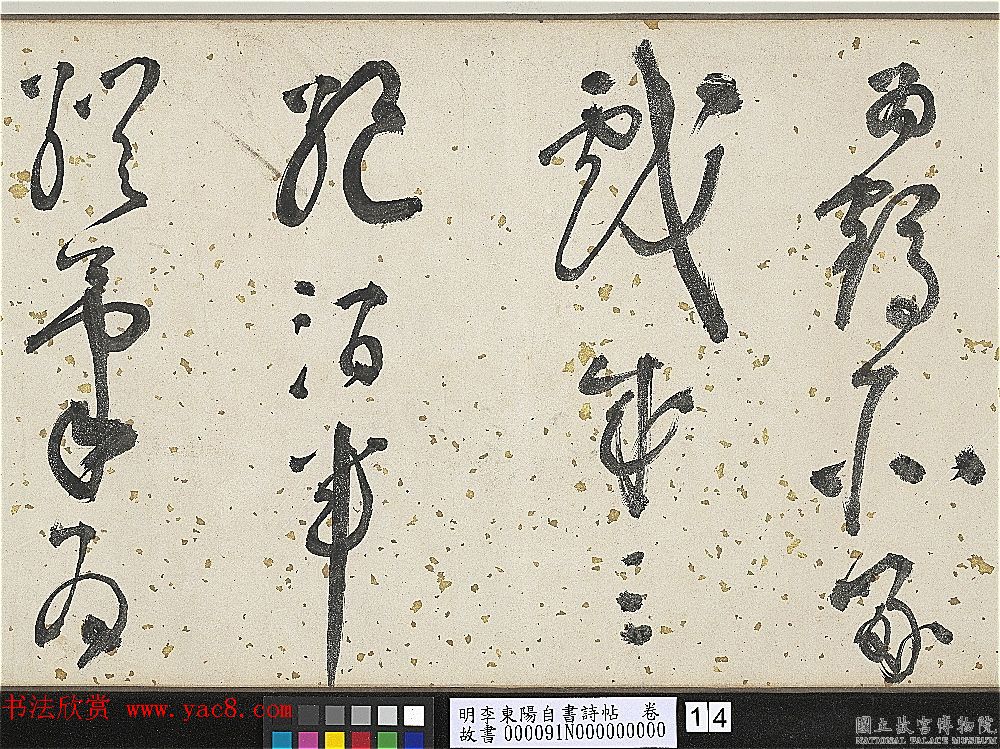 戲成三
絕酒半
縱筆為
书法欣赏 www.yac8.com
明李東陽自書詩帖 卷
故書 000091N000000000
14
國立故宮博物院
NATIONAL PALACE MUSEUM